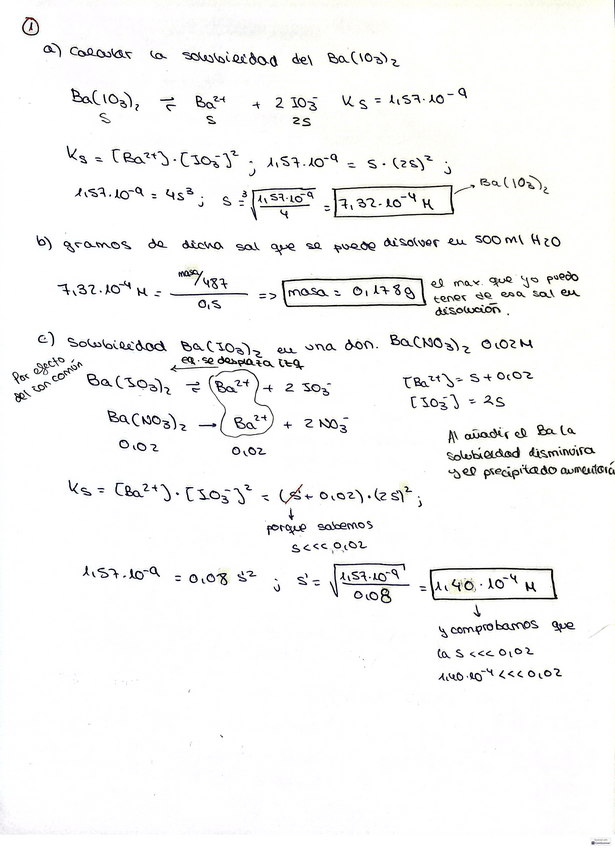 1
a) Calcular la solubilidad del Ba(IO3)2
Ba(IO3)2 ⇌ Ba2+ + 2 IO3- Ks = 1,57·10-9
S S 2S
Ks = [Ba2+]·[IO3-]2 ; 1,57·10-9 = S·(2S)2 ;
1,57·10-9 = 4S3 ; S = 3√1,57·10-9/4 = 7,32·10-4 M → Ba(IO3)2
b) gramos de dicha sal que se puede disolver en 500ml H2O
7,32·10-4 M = masa/487 / 0,5 => masa = 0,178g
el max. que yo puedo
tener de esa sal en
disolución.
c) Solubilidad Ba(IO3)2 en una don. Ba(NO3)2 0,02M
Por efecto
del ion común
eq. se desplaza izq
Ba(IO3)2 ⇌ Ba2+ + 2 IO3-
Ba(NO3)2 → Ba2+ + 2 NO3-
0,02 0,02
[Ba2+] = S + 0,02
[IO3-] = 2S
Al añadir el Ba la
solubilidad disminuira
y el precipitado aumentará
Ks = [Ba2+]·[IO3-]2 = (S + 0,02)·(2S)2 ;
porque sabemos
S <<< 0,02
1,57·10-9 = 0,08 S'2 ; S' = √1,57·10-9/0,08 = 1,40·10-4 M
y comprobamos que
la S <<< 0,02
1,40·10-4 <<< 0,02